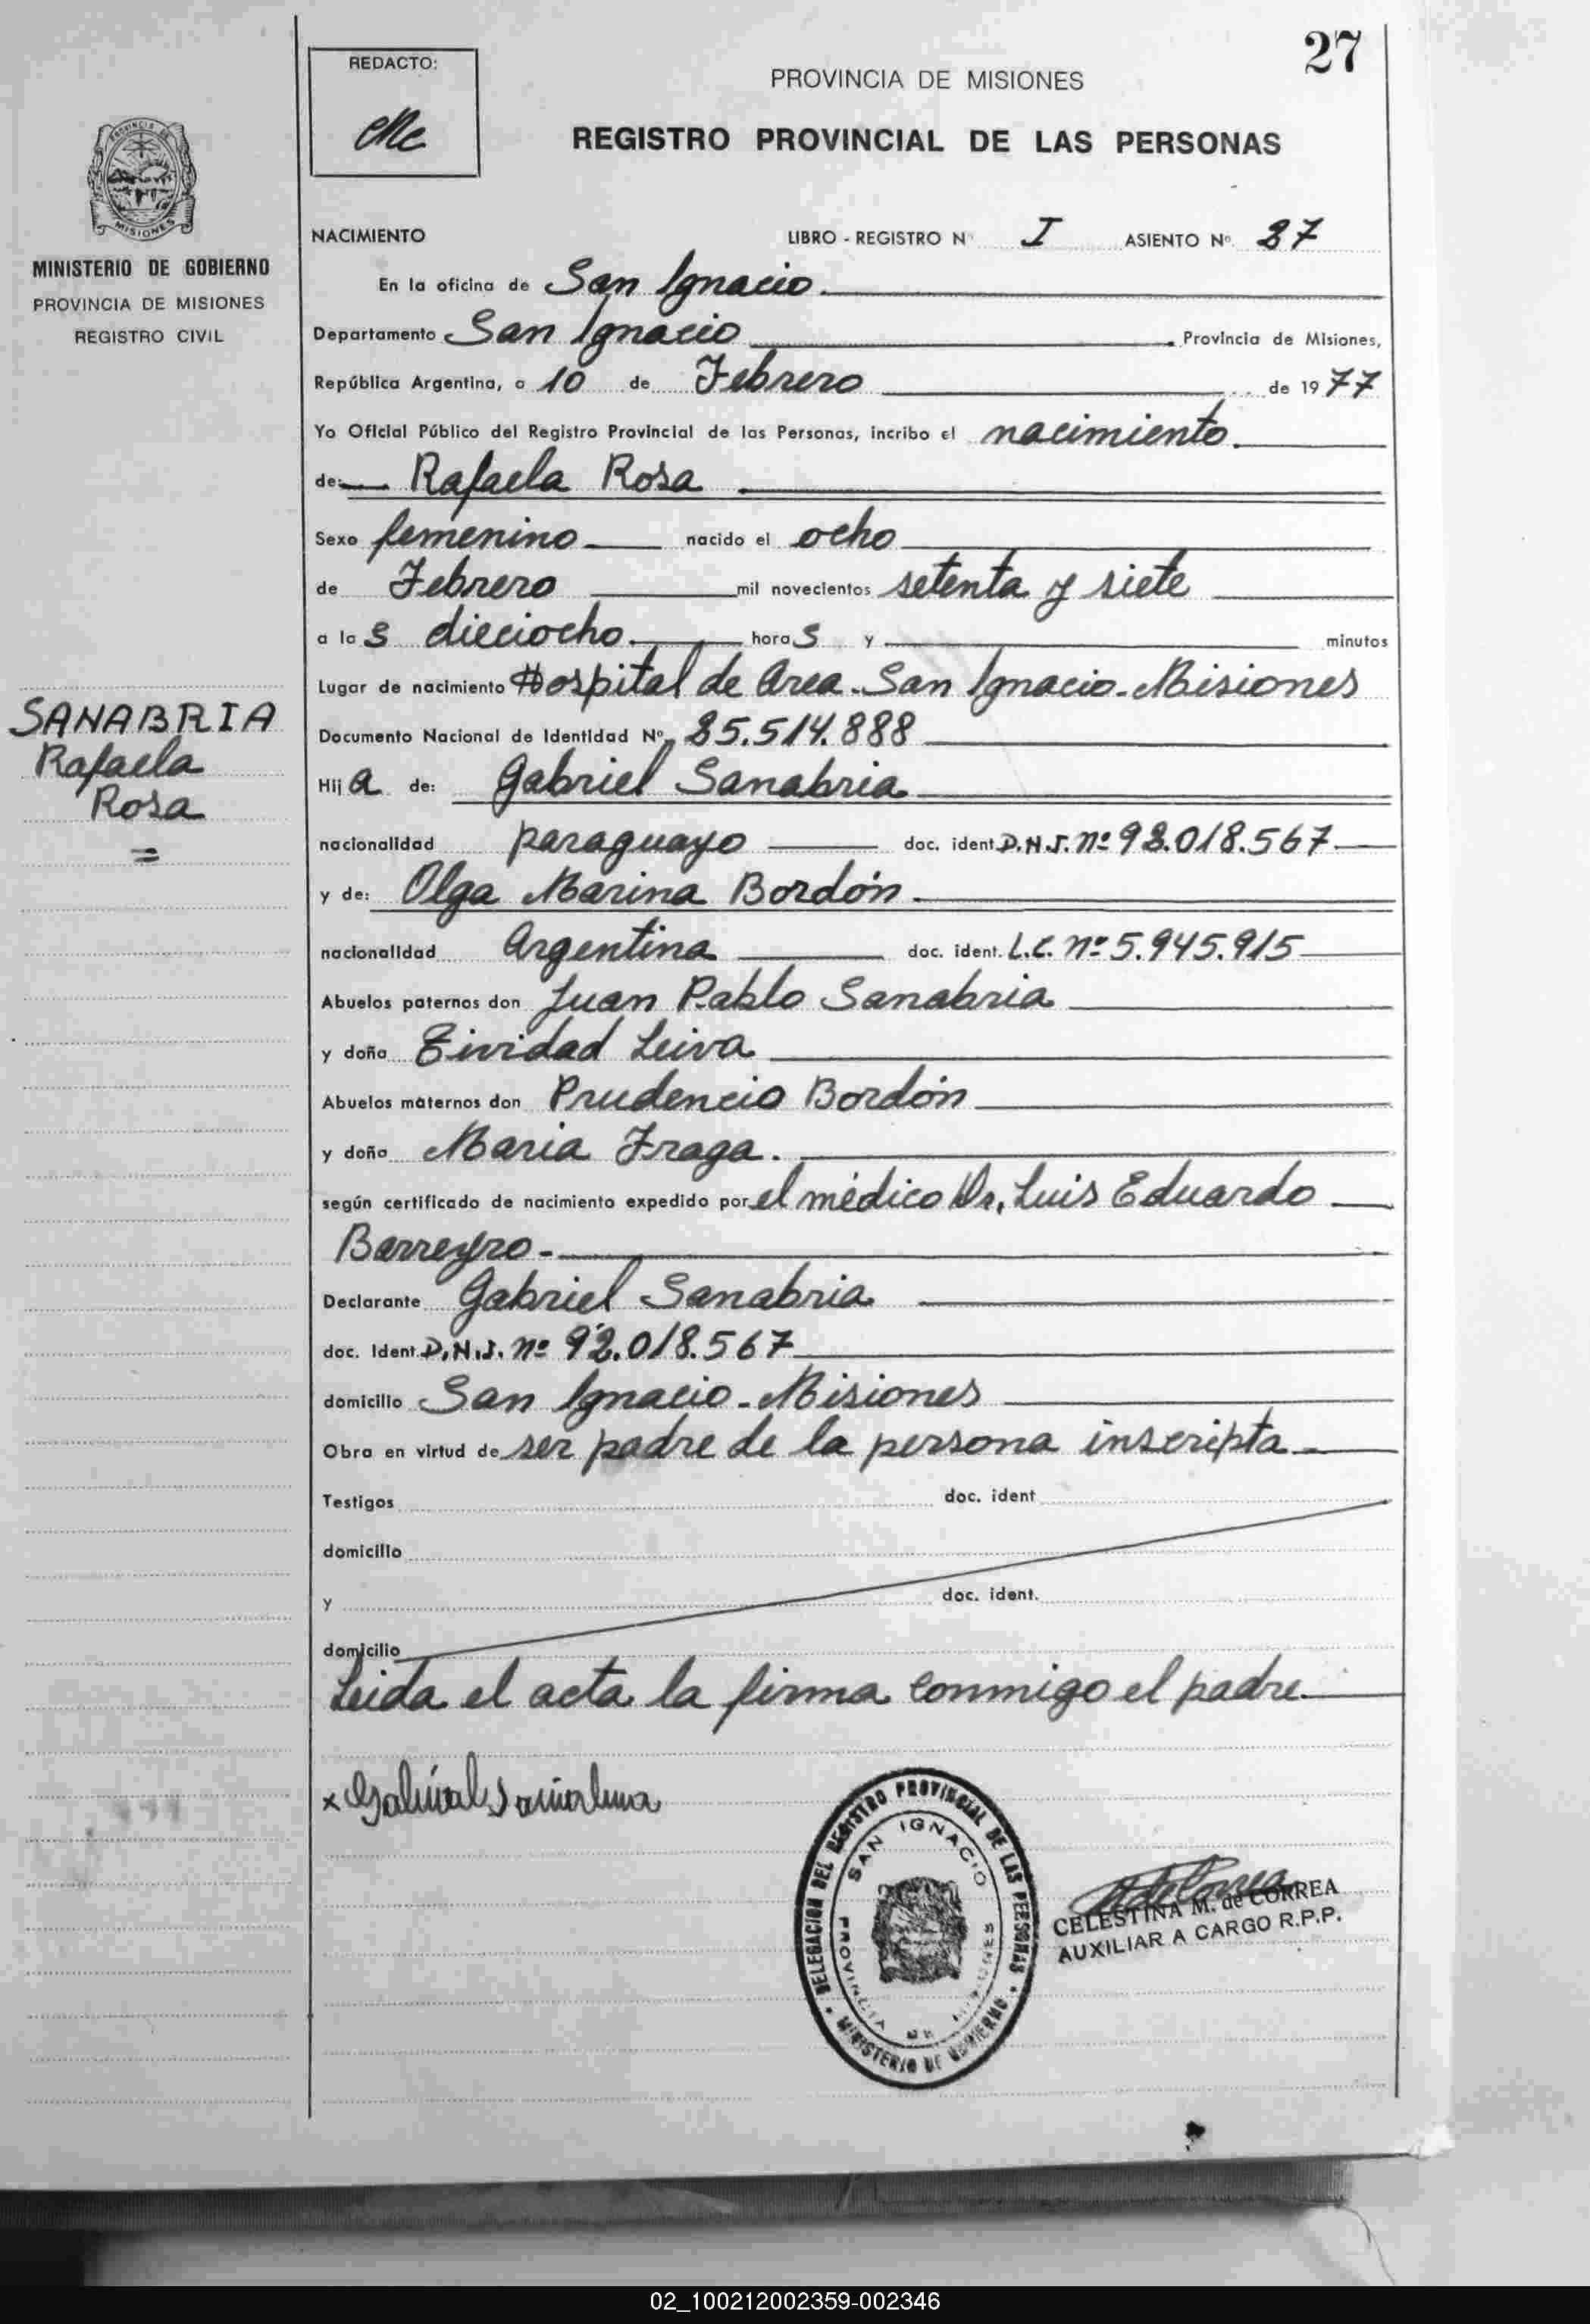 27
REDACTO:
PROVINCIA DE MISIONES
REGISTRO PROVINCIAL DE LAS PERSONAS
MISIONES
MINISTERIO DE GOBIERNO
PROVINCIA DE MISIONES
REGISTRO CIVIL
SANABRIA
Rafaela
Rosa
NACIMIENTO LIBRO - REGISTRO Nº I ASIENTO Nº 27
En la oficina de San Ignacio.
Departamento San Ignacio. Provincia de Misiones,
República Argentina, a 10 de Febrero de 1977
Yo Oficial Público del Registro Provincial de las Personas, incribo el nacimiento.
de: Rafaela Rosa
Sexo femenino nacido el ocho
de Febrero mil novecientos setenta y siete
a las dieciocho. horas y minutos
Lugar de nacimiento Hospital de Area. San Ignacio-Misiones
Documento Nacional de Identidad Nº 25.514.888
Hija de: Gabriel Sanabria
nacionalidad paraguayo doc. ident. D.N.I. nº 92.018.567
y de: Olga Marina Bordón.
nacionalidad Argentina doc. ident. L.C. nº 5.945.915
Abuelos paternos don Juan Pablo Sanabria
y doña Leiva
Abuelos maternos don Prudencio Bordón
y doña Maria Fraga.
según certificado de nacimiento expedido por el médico Dr. Luis Eduardo
Barreyro-
Declarante Gabriel Sanabria
doc. Ident. D.N.I. nº 92.018.567
domicilio San Ignacio-Misiones
Obra en virtud de ser padre de la persona inscripta
Testigos doc. ident
domicilio
y doc. ident.
domicilio
Leida el acta la firma conmigo el padre.
x Gabriel Sanabria
DELEGACION DEL REGISTRO PROVINCIAL DE LAS PERSONAS
SAN IGNACIO
PROVINCIA DE MISIONES
MINISTERIO DE GOBIERNO
CELESTINA M. de CORREA
AUXILIAR A CARGO R.P.P.
02_100212002359-002346